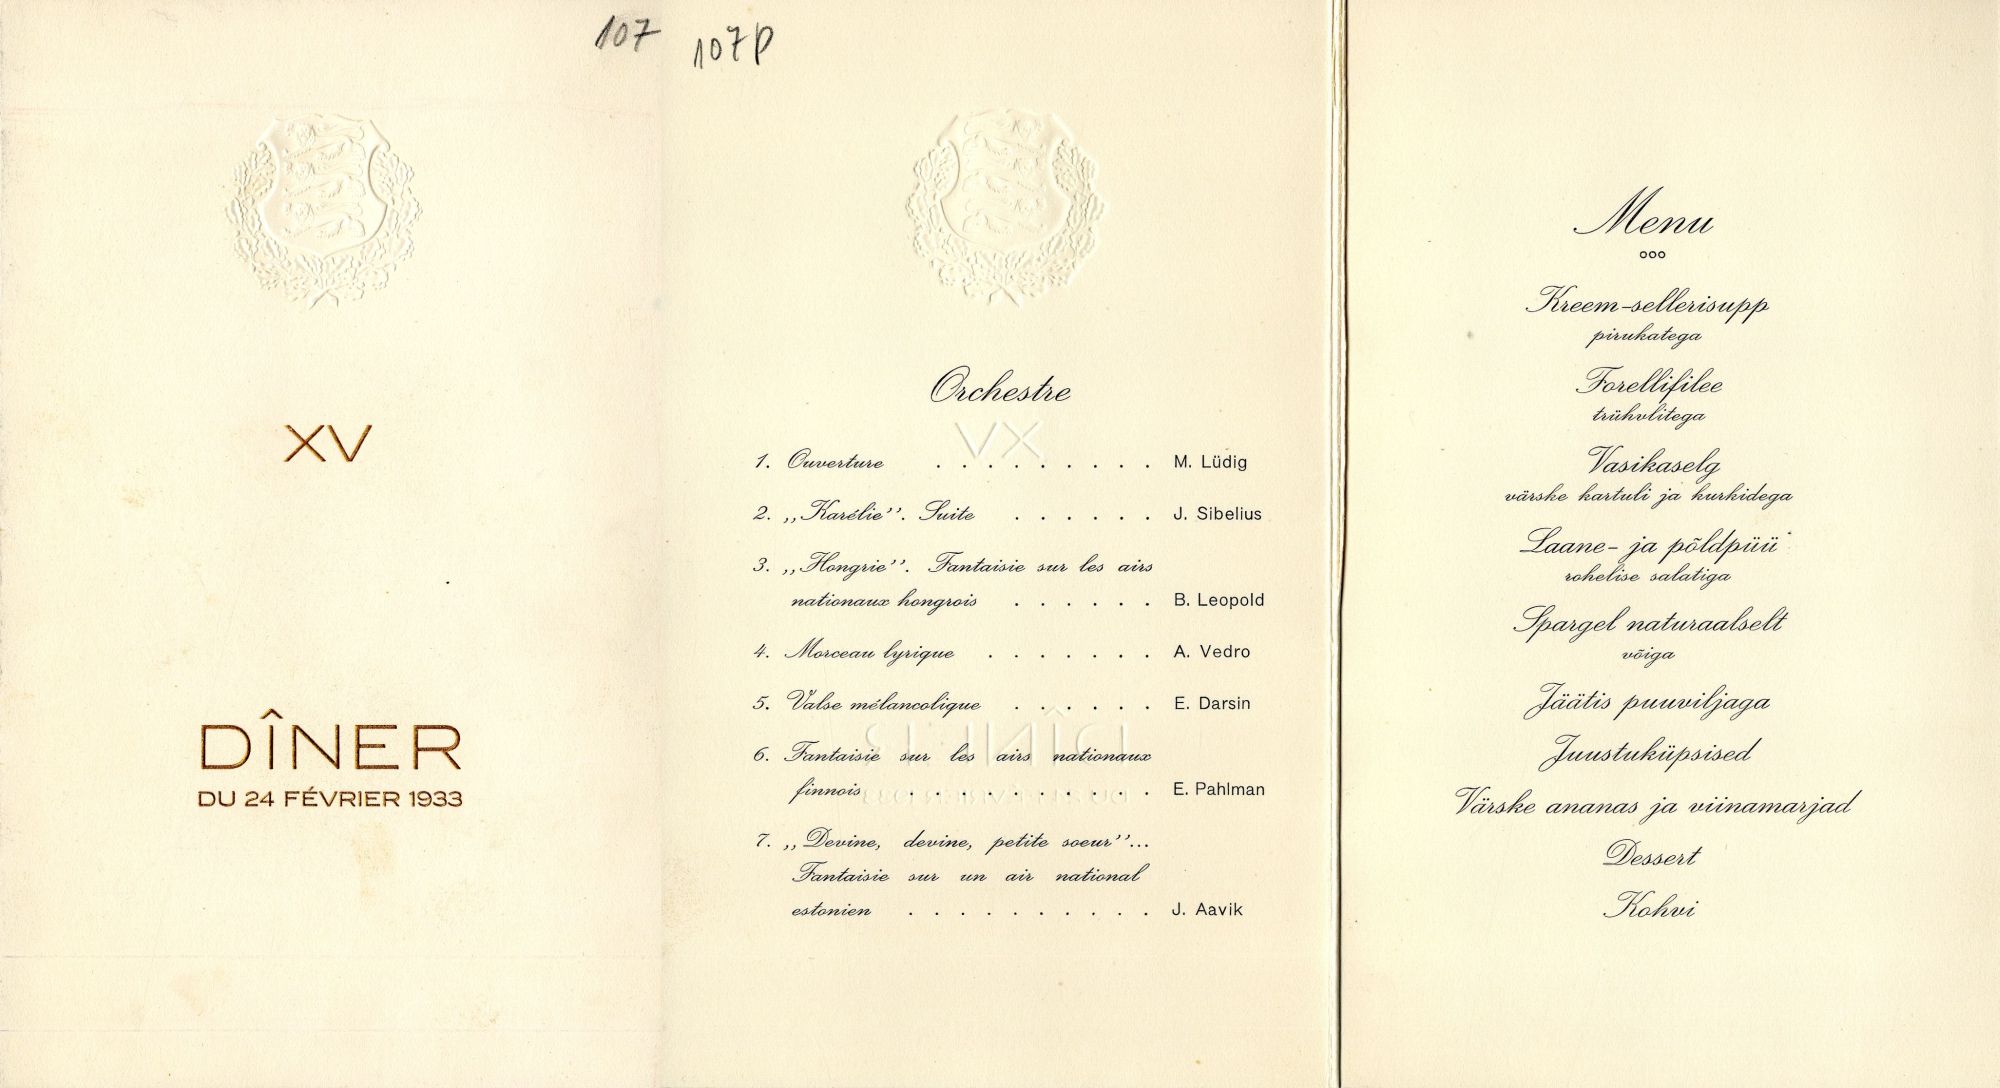 107
XV
DÎNER
DU 24 FÉVRIER 1933
107p
Orchestre
1. Ouverture . . . . . . . . . M. Lüdig
2. „Karélie”. Suite . . . . . . J. Sibelius
3. „Hongrie”. Fantaisie sur les airs
nationaux hongrois . . . . . . B. Leopold
4. Morceau lyrique . . . . . . . A. Vedro
5. Valse mélancolique . . . . . . E. Darsin
6. Fantaisie sur les airs nationaux
finnois . . . . . . . . . . E. Pahlman
7. „Devine, devine, petite soeur”...
Fantaisie sur un air national
estonien . . . . . . . . . . J. Aavik
Menu
ooo
Kreem-sellerisupp
pirukatega
Forellifilee
trühvlitega
Vasikaselg
värske kartuli ja kurkidega
Laane- ja põldpüü
rohelise salatiga
Spargel naturaalselt
võiga
Jäätis puuviljaga
Juustuküpsised
Värske ananas ja viinamarjad
Dessert
Kohvi